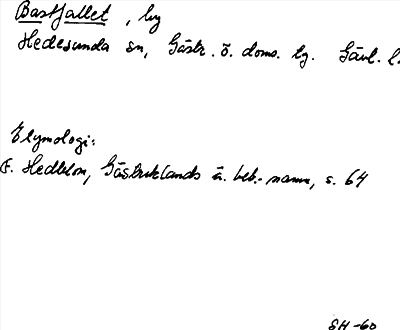 Bastfallet, by
Hedesunda sn, Gästr. ö. doms. hg. Gävl. l.
Etymologi:
F. Hedblom, Gästriklands ä. beb.-namn, s. 64
SH -60